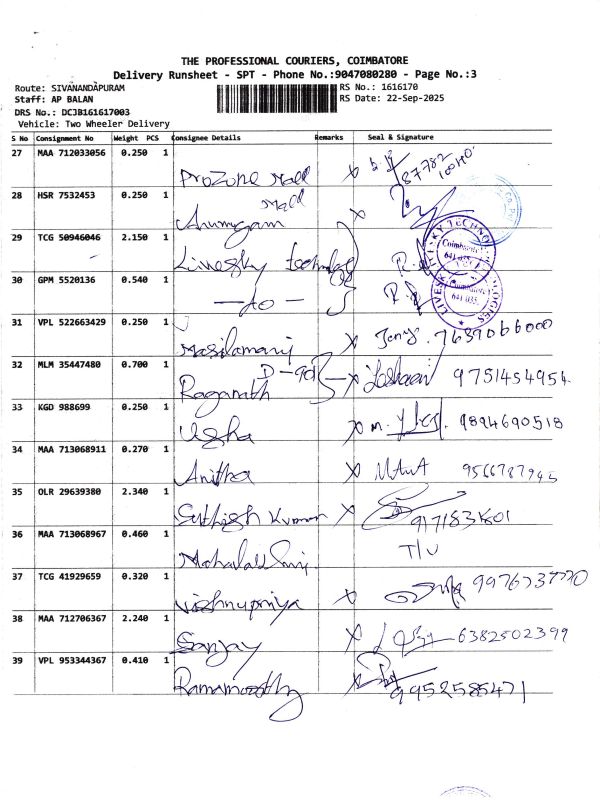 THE PROFESSIONAL COURIERS, COIMBATORE
Delivery Runsheet - SPT - Phone No.:9047080280 - Page No.:3
Route: SIVANANDAPURAM RS No.: 1616170
Staff: AP BALAN RS Date: 22-Sep-2025
DRS No.: DCJB161617003
Vehicle: Two Wheeler Delivery
S No Consignment No Weight PCS Consignee Details Remarks Seal & Signature
27 MAA 712033056 0.250 1 Prozone Mall
28 HSR 7532453 0.250 1 Arumugam Mall
29 TCG 50946046 2.150 1 Livesky technology
30 GPM 5520136 0.540 1 — do —
LIVESKY TECHNOLOGIES
Coimbatore
641 035.
31 VPL 522663429 0.250 1 Masilamani 7639066000
32 MLM 35447480 0.700 1 Raganath 9751454954
33 KGD 988699 0.250 1 Usha 9894690518
34 MAA 713068911 0.270 1 Anitha 9566787945
35 OLR 29639380 2.340 1 Sathish Kumar
36 MAA 713068967 0.460 1
37 TCG 41929659 0.320 1 Vishnupriya
38 MAA 712706367 2.240 1 Sanjay 6382502399
39 VPL 953344367 0.410 1 Ramamoorthy 9952585471